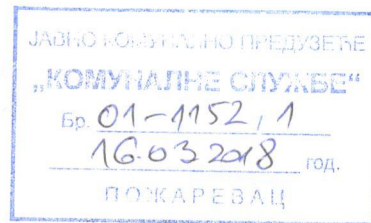 ЈАВНО КОМУНАЛНО ПРЕДУЗЕЋЕ
„КОМУНАЛНЕ СЛУЖБЕ“
Бр. 01-1152, 1
16.03 2018 год.
ПОЖАРЕВАЦ